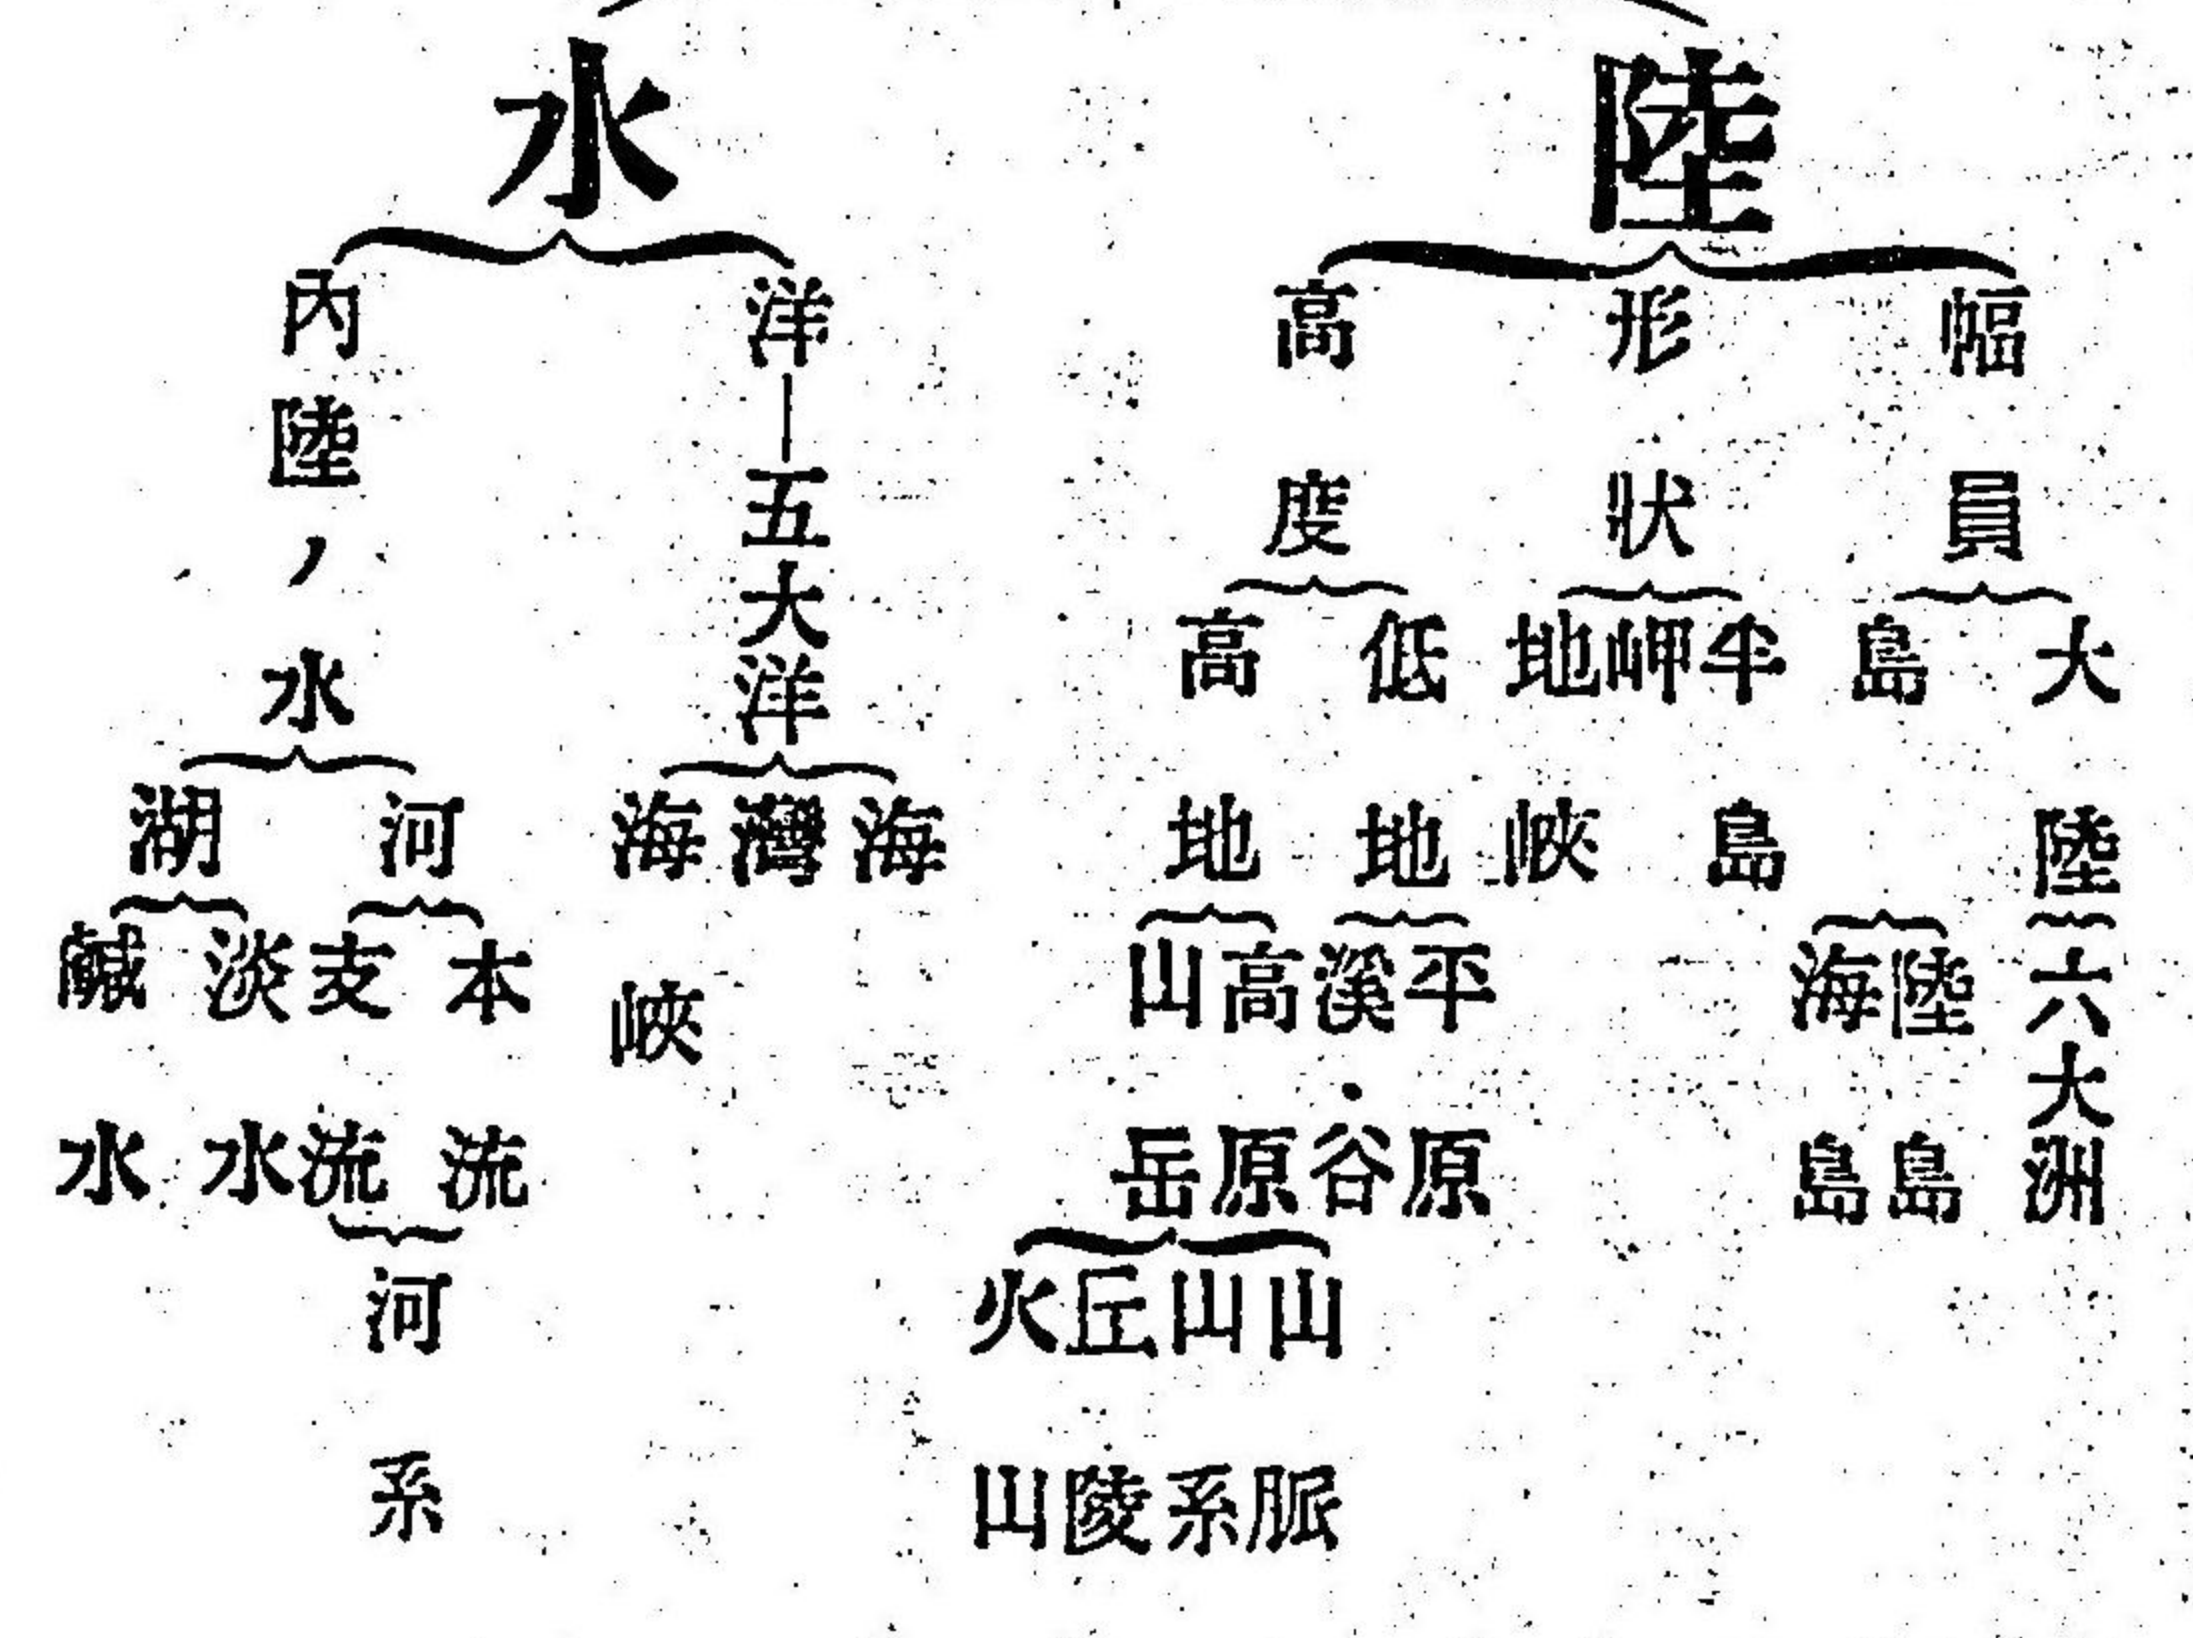 陸
幅員
大陸
六大洲
島
陸島
海島
形状
半島
岬
地峽
高度
低地
平原
溪谷
高地
高原
山岳
山脈
山系
丘陵
火山
水
洋—五大洋
海
灣
海峽
內陸ノ水
河
本流
支流
河系
湖
淡水
鹹水